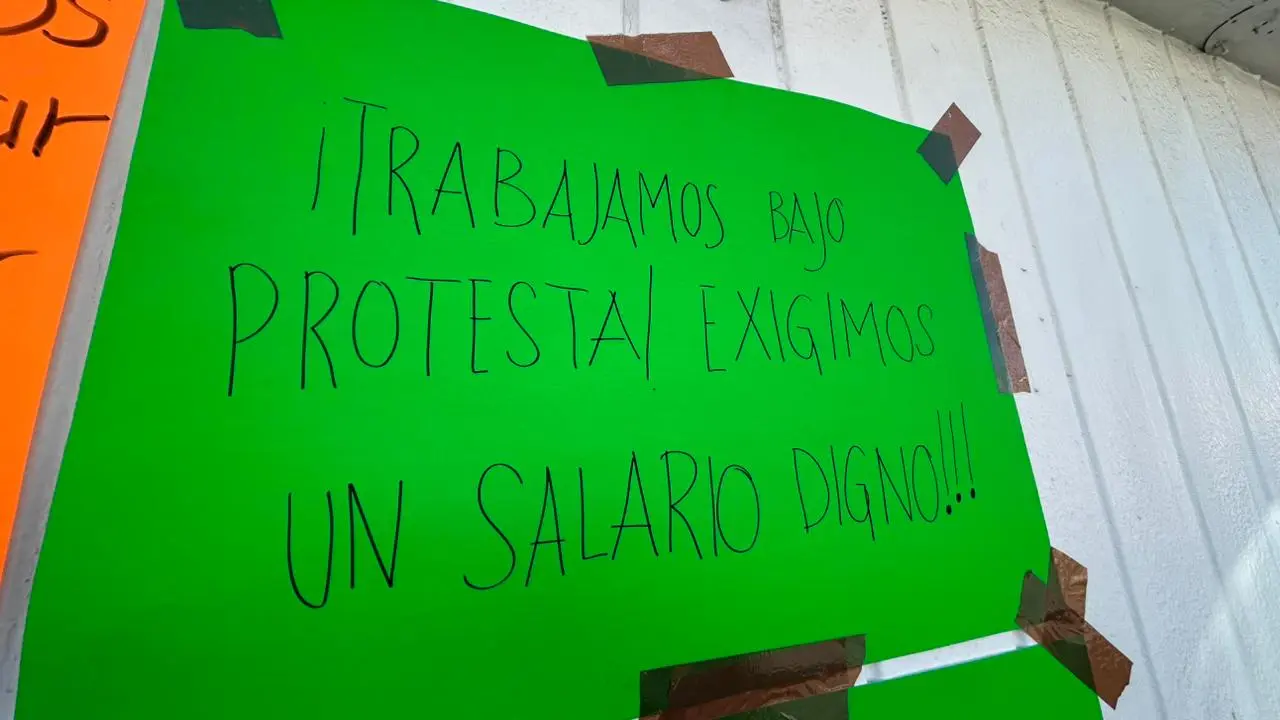 ¡TRABAJAMOS BAJO
PROTESTA! EXIGIMOS
UN SALARIO DIGNO!!!